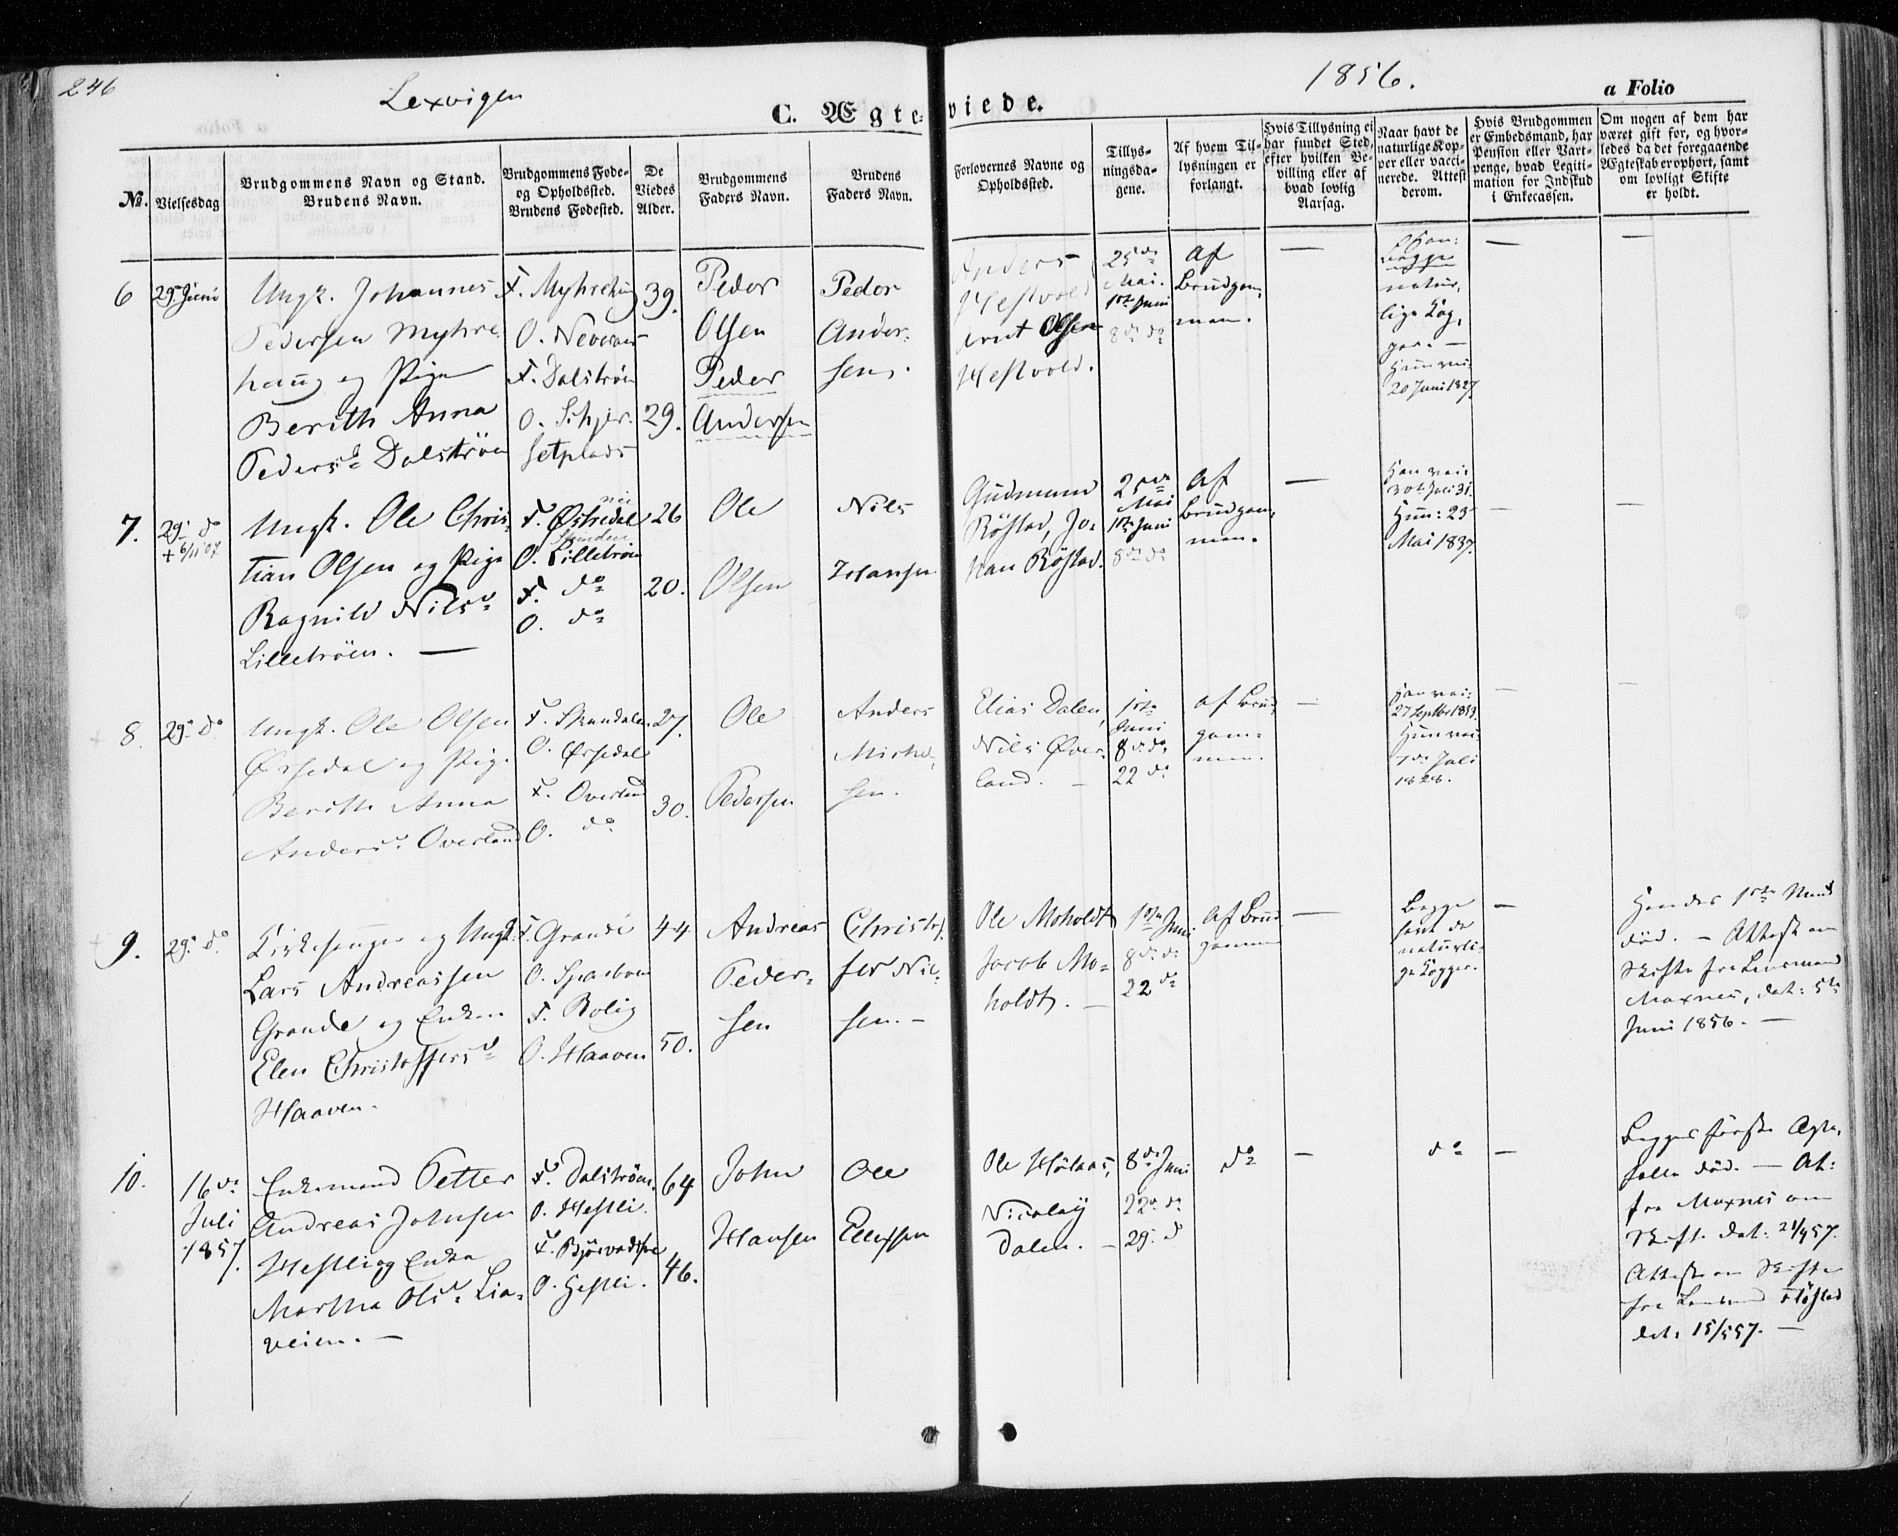 246
Lexvigen
1856.
C. Ægteviede.
a Folio
No.
Vielsesdag
Brudgommens Navn og Stand.
Brudens Navn.
Brudgommens Føde-
og Opholdssted.
Brudens Fødested.
De
Viedes
Alder.
Brudgommens
Faders Navn.
Brudens
Faders Navn.
Forlovernes Navne og
Opholdssted.
Tillys-
ningsda-
gene.
Af hvem Til-
lysningen er
forlangt.
Hvis Tillysning ei
har fundet Sted,
efter hvilken Be-
villing eller af
hvad lovlig
Aarsag.
Naar havt de
naturlige Kop-
per eller vacci-
nerede. Attest
derom.
Hvis Brudgommen
er Embedsmand, har
Pension eller Vart-
penge, hvad Legiti-
mation for Indskud
i Enkecassen.
Om nogen af dem har
været gift før, og hvor-
ledes da det foregaaende
Ægteskab er ophørt, samt
om lovligt Skifte
er holdt.
6
29 Juni
Ungk. Johannes
Pedersen Myhre-
haug og Pige
Berith Anna
Pedersd Dalströen
F. Myhrehaug
O.
F. Dalströen
O. Schjer-
setplads
39.
29.
Peder
Olsen
Peder
Andersen
Peder
Ander-
sen.
Anders
Hestvold
Arnt Olsen
Hestvold.
25de
Mai.
1ste Juni
8de do
Af
Brudgom-
men.
—
Han:
Begge
natur-
lige Kop-
per. —
Hun vac.
20 Juni 1827
—
—
7.
29. do
+ 6/11 07
Ungk. Ole Chris-
tian Olsen og Pige
Ragnild Nilsd
Lilletröen. —
F. Østredal
O. Lilletröen
F. do
O. do
26
20.
Ole
Olsen
Nils
Johansen
Gudmund
Röstad, Jo-
han Röstad.
25de
Mai
1ste Juni
8de do
Af
Brudgom-
men.
—
Han vac:
30te Juli 31.
Hun: 23
Mai 1837.
—
—
8.
29. do
Ungk. Ole Olsen
Ørsedal og Pige
Berith Anna
Andersd Overland
F. Skandalen
O. Ørsedal
F. Overland
O. do
27.
30.
Ole
Pedersen
Anders
Miche-
sen.
Elias Dalen,
Nils Øver-
land. —
1ste
Juni
8de do
22 do
af Brud-
gom-
men.
—
Han vac:
27 Septbr 1833.
Hun vac
Juli
1828.
—
—
9.
29. do
Kirkesanger og Ungk.
Lars Andreassen
Grande og Enken
Elen Christoffersd
Haaven.
F. Grande
O. Sparboen
F. Rolig
O. Haaven
44
50.
Andreas
Peder-
sen
Christof-
fer Nil-
sen. —
Ole Moholdt
Jacob Mo-
holdt. —
1ste Juni
8de do
22 do
Af Brud-
gommen
—
Begge
havt de
naturli-
ge Kopper.
—
Hendes 1ste Mand
död. — Attest om
Skifte fra Lensmand
Moxnes, dat: 5te
Juni 1856. —
10.
16de
Juli
1857.
Enkemand Petter
Andreas Johnsen
Hestli og Enke
Martha Olsd Lia-
veien. —
F. Dalströen.
O. Hestli.
O. Hestli.
64
46.
John
Hansen
Ole
Ellefsen
Ole Höilaas,
Nicolay
Dalen. —
8de Juni
22de do
29. d
do
—
do
—
Begges förste Ægte-
fælle död. — At:
fra Moxnes om
Skift. dat: 21/4 57.
Attest om Skifte
fra Lensmand Flöstad
dat. 15/5 57. —